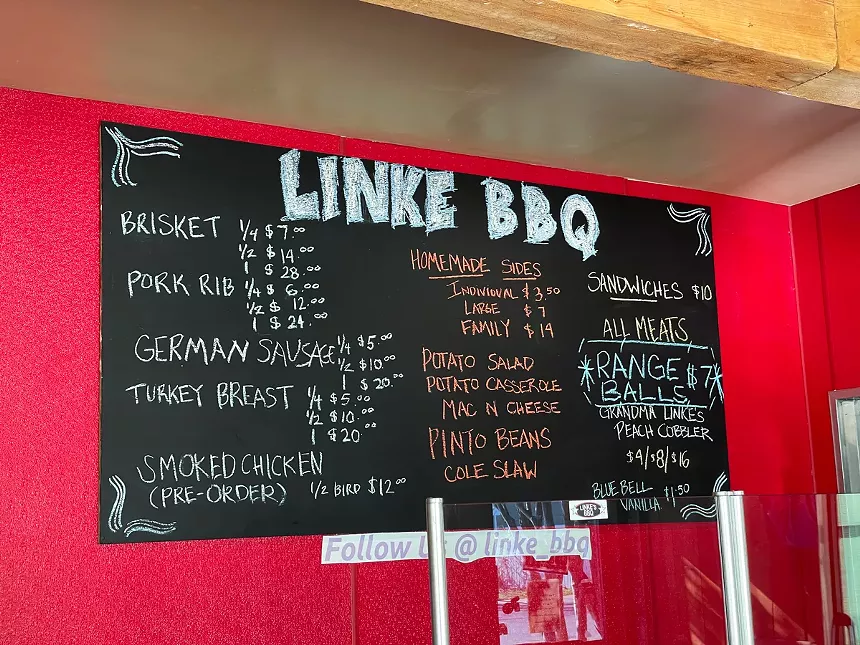 LINKE BBQ
BRISKET 1/4 $7.00
1/2 $14.00
1 $28.00
PORK RIB 1/4 $6.00
1/2 $12.00
1 $24.00
GERMAN SAUSAGE 1/4 $5.00
1/2 $10.00
1 $20.00
TURKEY BREAST 1/4 $5.00
1/2 $10.00
1 $20.00
SMOKED CHICKEN
(PRE-ORDER) 1/2 BIRD $12.00
HOMEMADE SIDES
INDIVIDUAL $3.50
LARGE $7
FAMILY $14
POTATO SALAD
POTATO CASSEROLE
MAC N CHEESE
PINTO BEANS
COLE SLAW
SANDWICHES $10
ALL MEATS
*RANGE $7*
BALLS
GRANDMA LINKE'S
PEACH COBBLER
$4/$8/$16
BLUE BELL $1.50
VANILLA
LINKE'S
BBQ
Follow @ linke_bbq